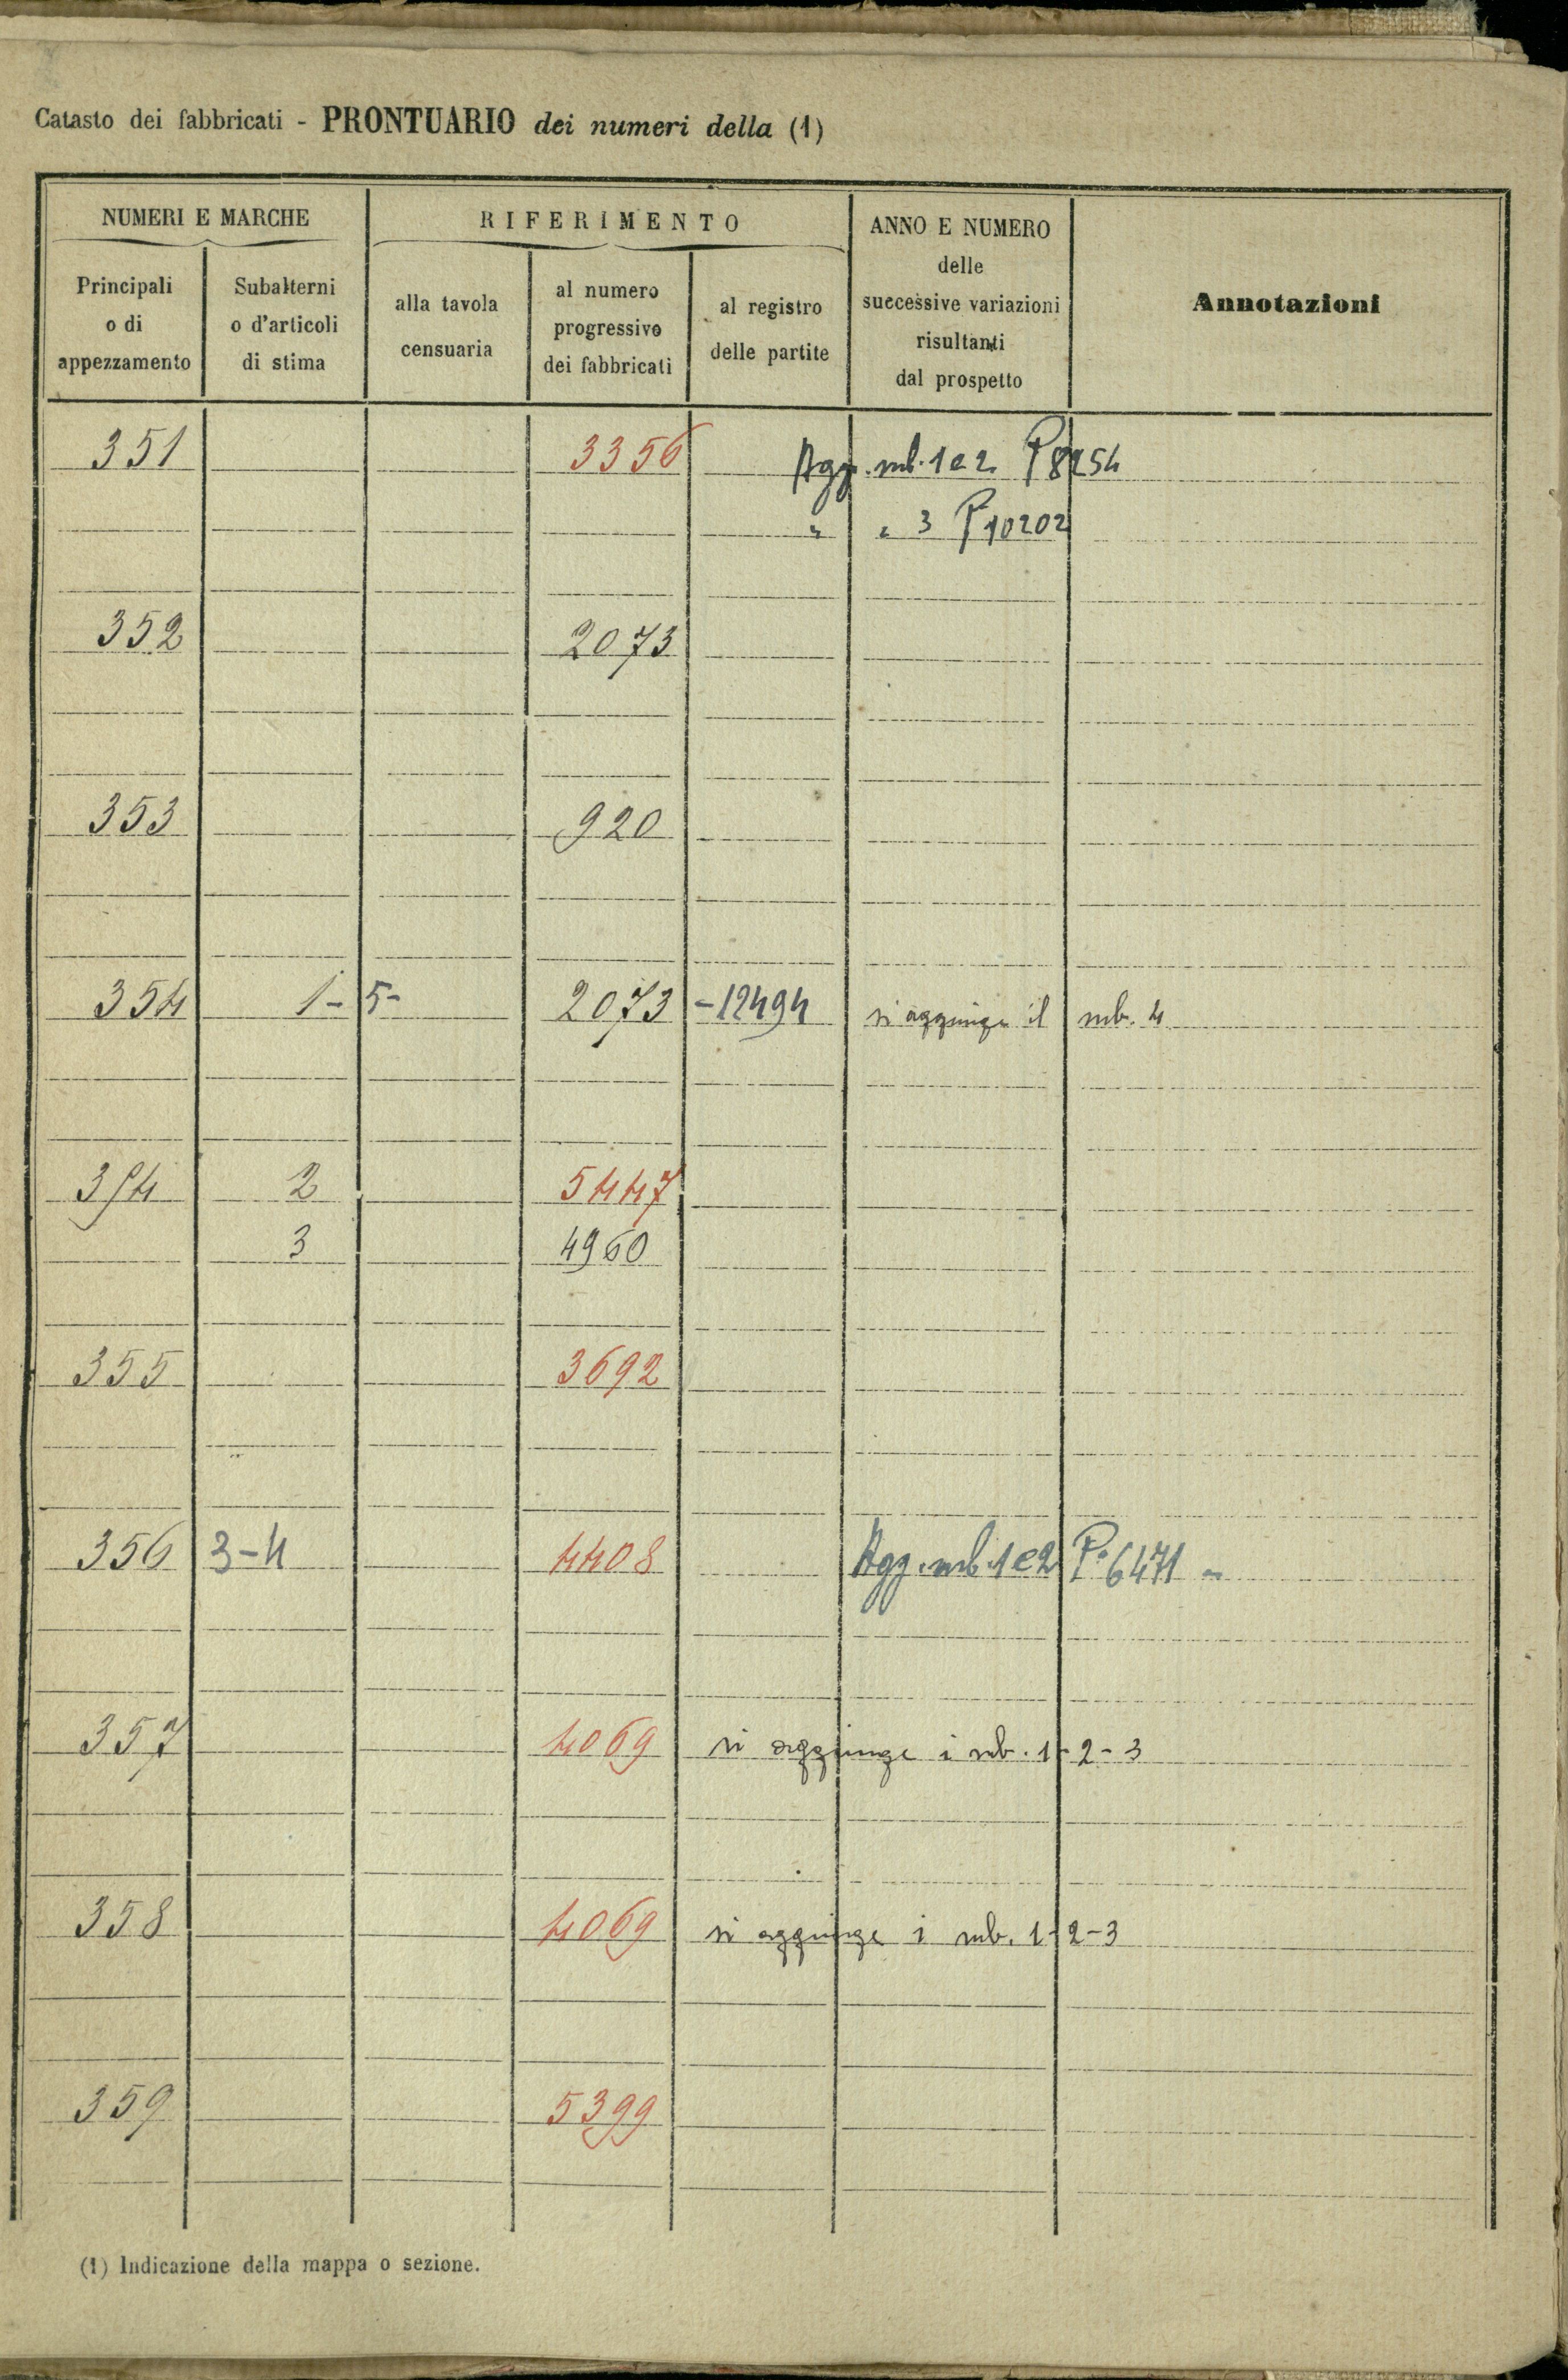 Catasto dei fabbricati - PRONTUARIO dei numeri della (1)
NUMERI E MARCHE RIFERIMENTO ANNO E NUMERO delle successive variazioni risultanti dal prospetto Annotazioni
Principali o di appezzamento Subalterni o d'articoli di stima alla tavola censuaria al numero progressivo dei fabbricati al registro delle partite
351 3356 Agg. sub. 1 e 2 P 8254
" " 3 P 10202
352 2073
353 920
354 1- 5- 2073 -12494 si aggiunge il sub. 4
354 2 5447
3 4960
355 3692
356 3-4 4408 Agg. sub. 1 e 2 P. 6471 -
357 4069 si aggiunge i sub. 1-2-3
358 4069 si aggiunge i sub. 1-2-3
359 5399
(1) Indicazione della mappa o sezione.